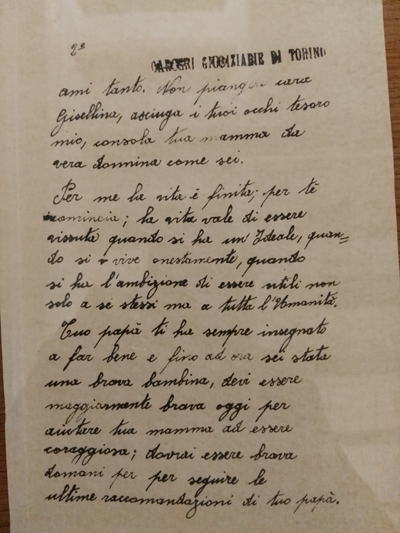 2°
CARCERI GIUDIZIARIE DI TORINO
ami tanto. Non piangere cara
Gisellina, asciuga i tuoi occhi tesoro
mio, consola tua mamma da
vera donnina come sei.
Per me la vita è finita; per tè
comincia; la vita vale di essere
vissuta quando si ha un'Ideale, quan-
do si vive onestamente, quando
si ha l'ambizione di essere utili non
solo a se stessi ma a tutta l'Umanità.
Tuo papà ti ha sempre insegnato
a far bene e fino ad ora sei stata
una brava bambina, devi essere
maggiormente brava oggi per
aiutare tua mamma ad essere
coraggiosa; dovrai essere brava
domani per per seguire le
ultime raccomandazioni di tuo papà.